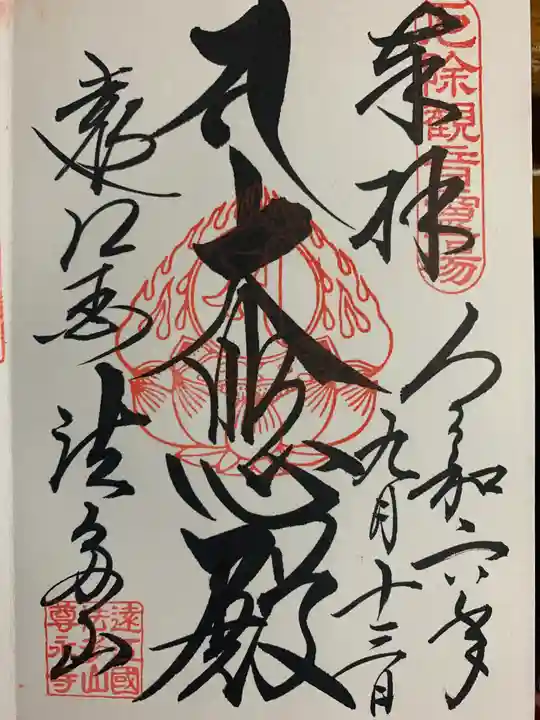 奉拝
厄除観音霊場
令和六年
九月十三日
大悲殿
遠江國
法多山
遠江國
法多山
尊永寺